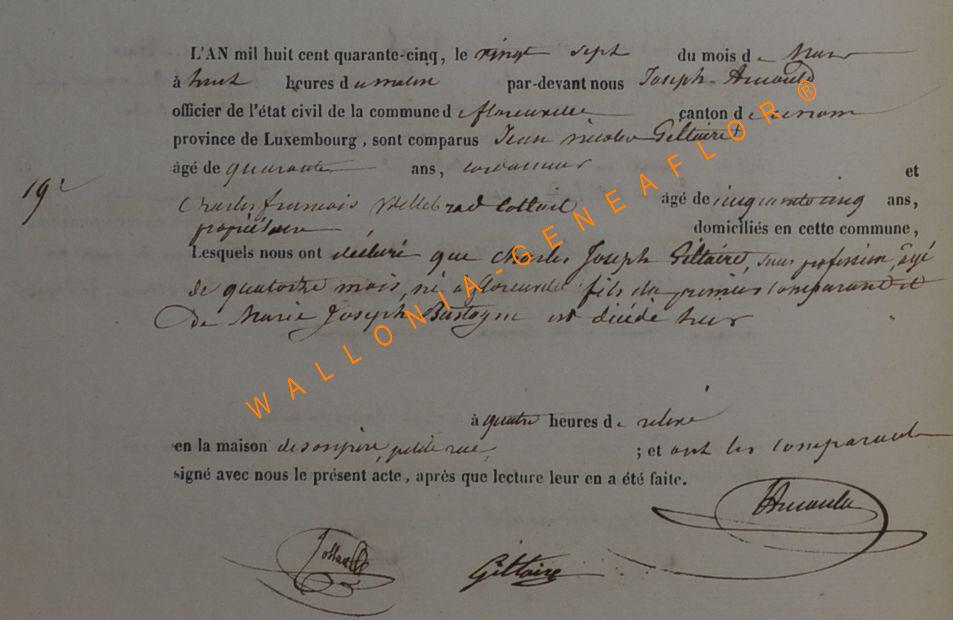 L'AN mil huit cent quarante-cinq, le vingt sept du mois de Mars
à huit heures du matin par-devant nous Joseph Arnould
officier de l'état civil de la commune de florenville canton de
province de Luxembourg, sont comparus Jean nicolas Giltaire
âgé de quarante ans, cordonnier et
19e
Charles françois Collard âgé de cinquante cinq ans,
propriétaire domiciliés en cette commune,
Lesquels nous ont déclaré que Charles Joseph Giltaire, sans profession, âgé
de quatorze mois, né à florenville fils du premier comparant et
de Marie Joseph Bastogne est décédé hier
à quatre heures de relevé
en la maison de son père, petite rue, ; et ont les comparants
signé avec nous le présent acte, après que lecture leur en a été faite.
JArnould
Collard
Giltaire
WALLONIA-GENEAFLOR ®